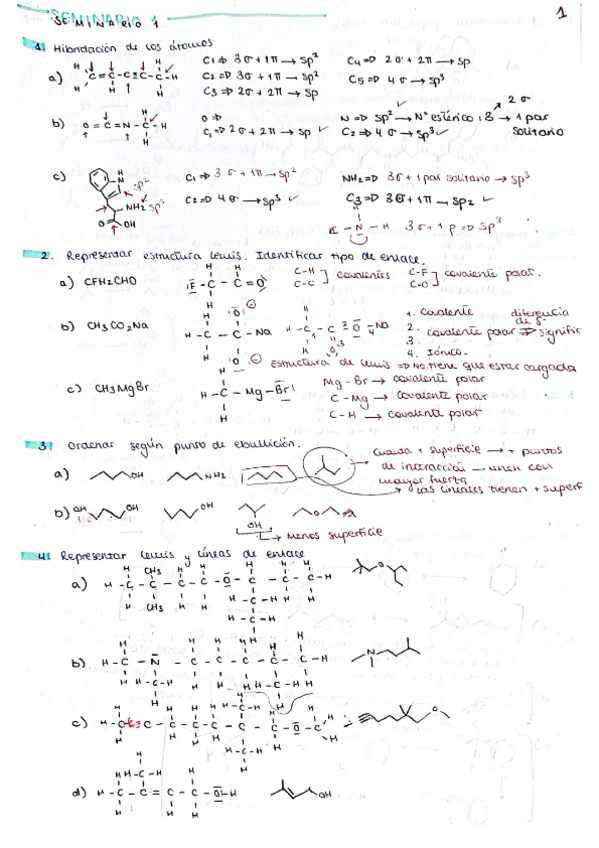 SEMINARIO 1
SEMINARIO 1
1
1. Hibridación de los átomos
a)
C1 ⇒ 3σ + 1π → sp²
C2 ⇒ 3σ + 1π → sp²
C3 ⇒ 2σ + 2π → sp
C4 ⇒ 2σ + 2π → sp
C5 ⇒ 4σ → sp³
b) O = C = N - C - H
O ⇒
C1 ⇒ 2σ + 2π → sp
N ⇒ sp² → Nº estérico: 3 → 2σ
→ 1 par solitario
C2 ⇒ 4σ → sp³
c)
N H
sp²
NH2 sp³
O OH
C1 ⇒ 3σ + 1π → sp²
C2 ⇒ 4σ → sp³
NH2 ⇒ 3σ + 1 par solitario → sp³
C3 ⇒ 3σ + 1π → sp2
3σ + 1 p ⇒ sp³
2. Representar estructura Lewis. Identificar tipo de enlace.
a) CFH2CHO
C-H
C-C
covalentes
C-F
C-O
covalente polar.
b) CH3CO2Na
1. Covalente
2. covalente polar
3.
4. Iónico.
diferencia de
estructura de Lewis ⇒ No tiene que estar cargada
c) CH3MgBr
H - C - Mg - Br
Mg - Br → covalente polar
C - Mg → covalente polar
C - H → covalente polar
3. Ordenar según punto de ebullición.
a) OH NH2
cuanta + superficie → + puntos
de interacción → unen con
mayor fuerza
→ las lineales tienen + superf
b) OH OH OH OH O
→ menos superficie
4. Representar Lewis y líneas de enlace
a) H - C - C - C - C - O - C - C - C - H
CH3
CH3
O
b) H - C - N - C - C - C - C - C - H
N
c)
O
d) H - C - C = C - C - O - H
OH